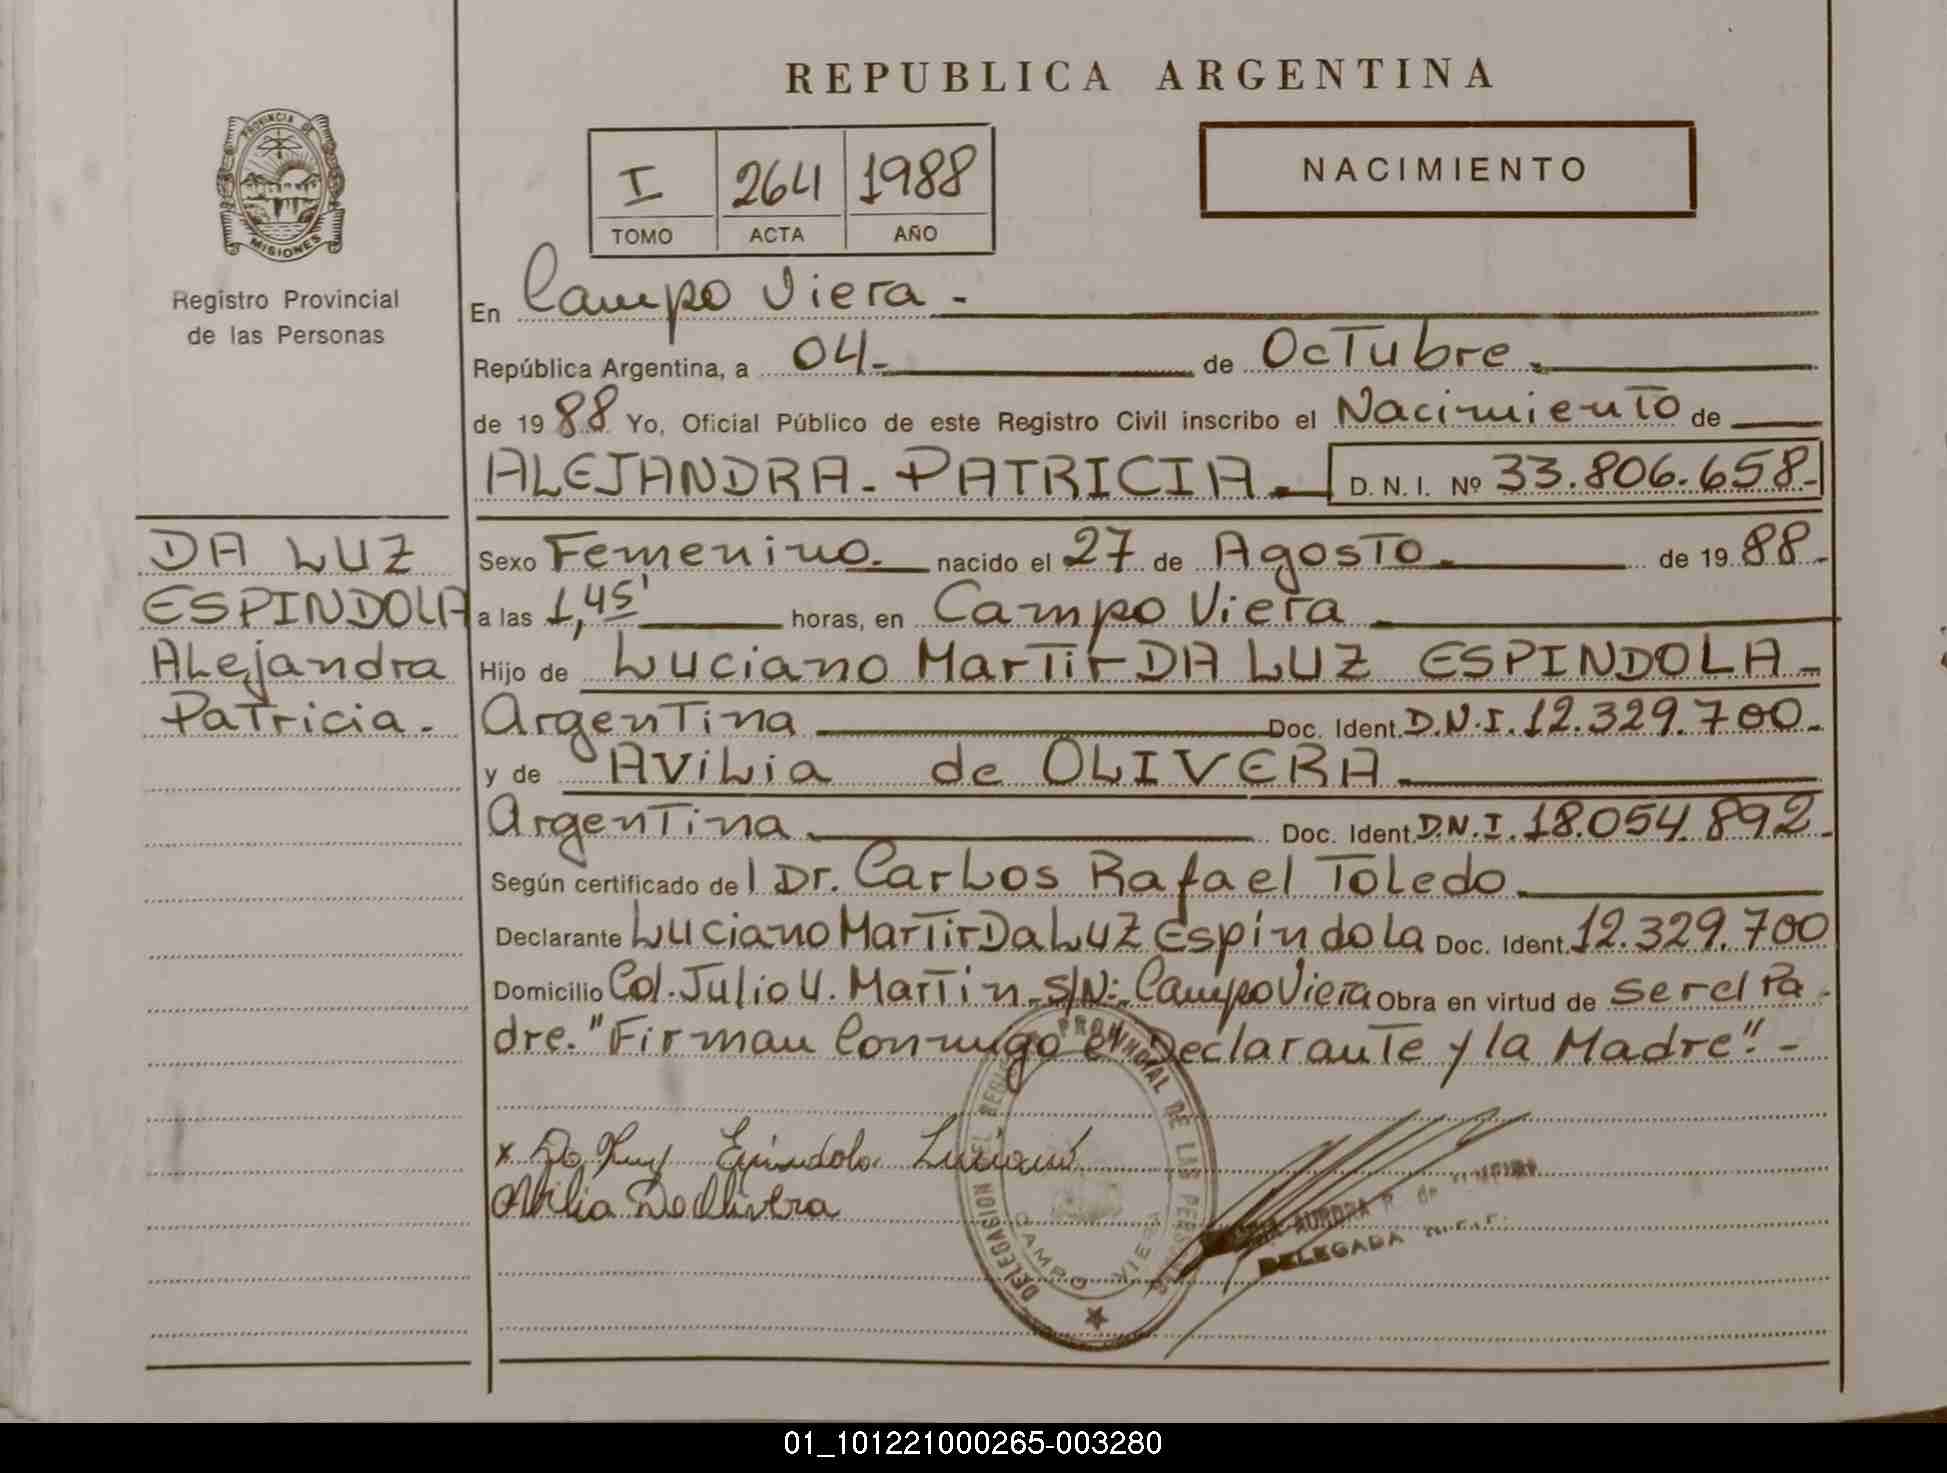 REPUBLICA ARGENTINA
PROVINCIA DE
MISIONES
Registro Provincial
de las Personas
I 264 1988
TOMO ACTA AÑO
NACIMIENTO
En Campo Viera -
República Argentina, a 04- de Octubre.
de 1988 Yo, Oficial Público de este Registro Civil inscribo el Nacimiento de
ALEJANDRA - PATRICIA. D. N. I. Nº 33.806.658-
DA LUZ
ESPINDOLA
Alejandra
Patricia.
Sexo Femenino. nacido el 27 de Agosto. de 1988.-
a las 1,45' horas, en Campo Viera
Hijo de Luciano Martir DA LUZ ESPINDOLA -
Argentina Doc. Ident. D.N.I. 12.329.700.-
y de AViLia de OLIVERA
Argentina. Doc. Ident. D.N.I. 18.054.892.-
Según certificado del Dr. Carlos Rafael Toledo.
Declarante Luciano Martir Da Luz Espíndola Doc. Ident. 12.329.700
Domicilio Col. Julio U. Martin S/N: Campo Viera Obra en virtud de ser el Pa-
dre. "Firman Conmigo el Declarante y la Madre". -
x Da Luz Epindola Luciano
Avilia De Olivera
DELEGACION DEL REGISTRO PROVINCIAL DE LAS PERSONAS
CAMPO VIERA
AURORA R. de
DELEGADA
01_101221000265-003280